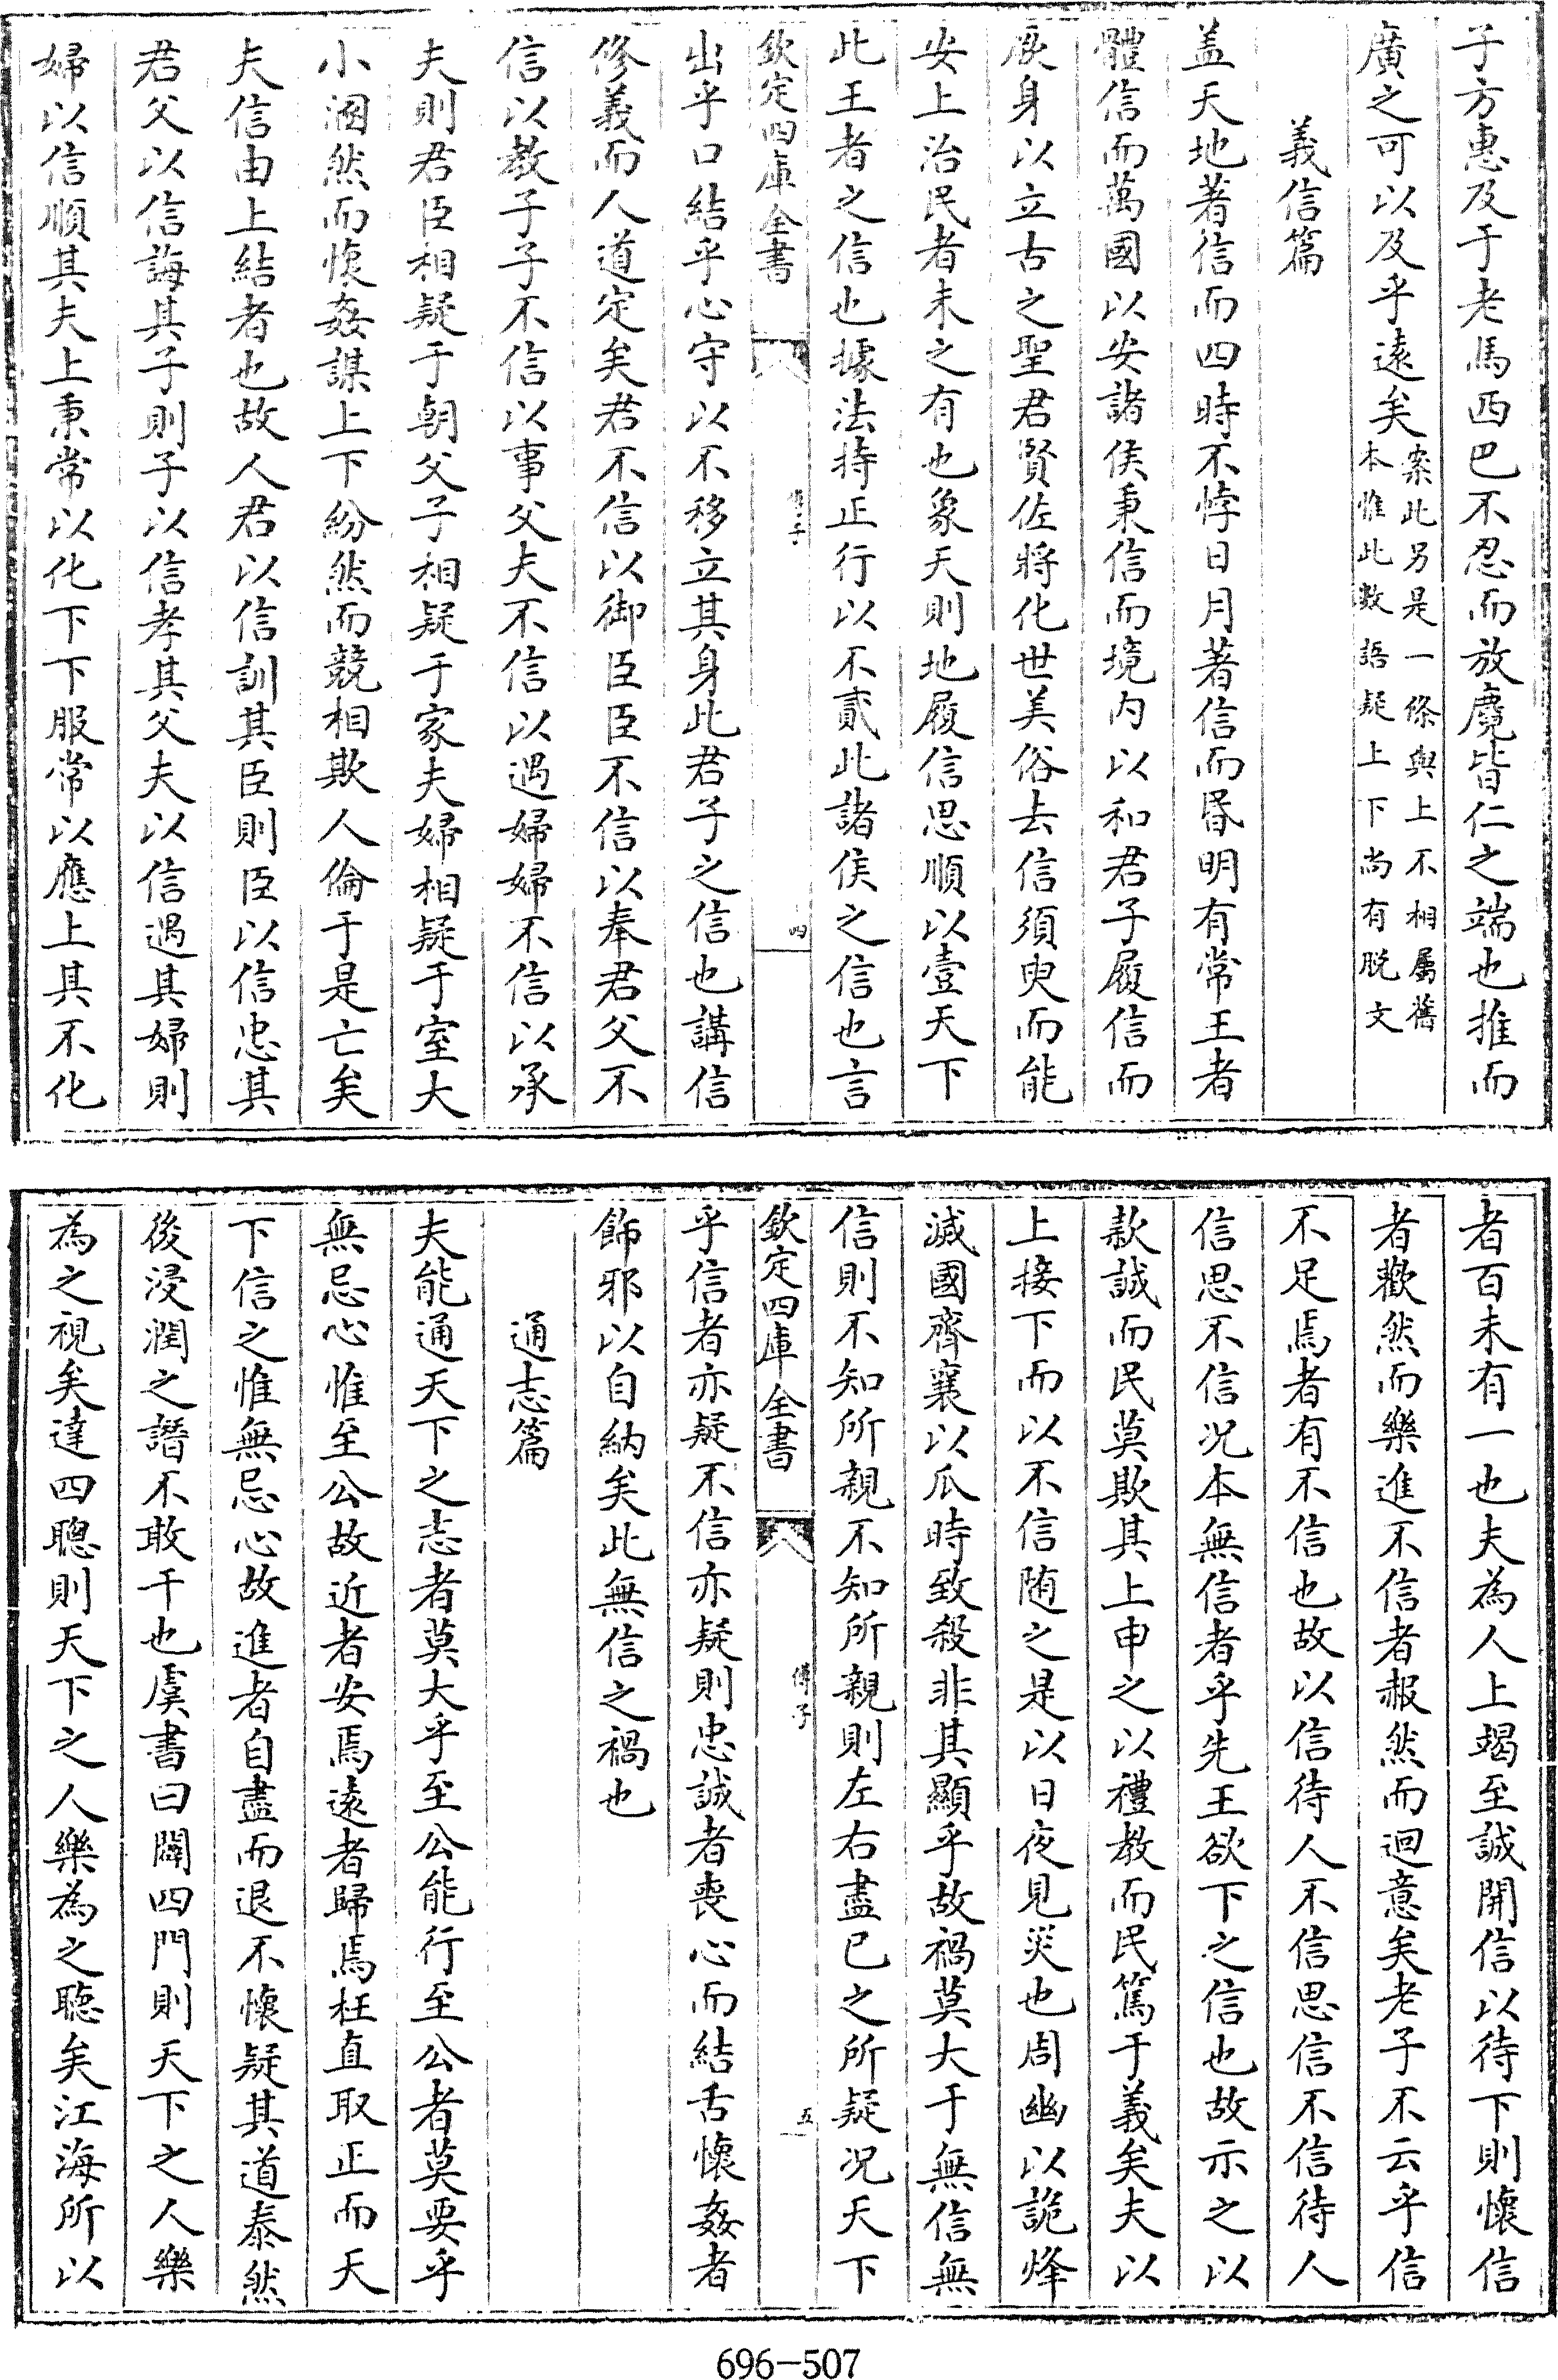 子方惠及于老馬西巴不忍而放麑皆仁之端也推而
廣之可以及乎遠矣案此另是一條與上不相屬舊本惟此數語疑上下尚有脱文
義信篇
盖天地著信而四時不悖日月著信而昏明有常王者
體信而萬國以安諸侯秉信而境内以和君子履信而
厥身以立古之聖君賢佐將化世美俗去信須臾而能
安上治民者未之有也象天則地履信思順以壹天下
此王者之信也據法持正行以不貳此諸侯之信也言
欽定四庫全書
傅子
四
出乎口結乎心守以不移立其身此君子之信也講信
修義而人道定矣君不信以御臣臣不信以奉君父不
信以教子子不信以事父夫不信以遇婦婦不信以承
夫則君臣相疑于朝父子相疑于家夫婦相疑于室大
小溷然而懷姦謀上下紛然而競相欺人倫于是亡矣
夫信由上結者也故人君以信訓其臣則臣以信忠其
君父以信誨其子則子以信孝其父夫以信遇其婦則
婦以信順其夫上秉常以化下下服常以應上其不化
者百未有一也夫為人上竭至誠開信以待下則懷信
者歡然而樂進不信者赧然而迴意矣老子不云乎信
不足焉者有不信也故以信待人不信思信不信待人
信思不信况本無信者乎先王欲下之信也故示之以
款誠而民莫欺其上申之以禮教而民篤于義矣夫以
上接下而以不信随之是以日夜見災也周幽以詭烽
滅國齊襄以瓜時致殺非其顯乎故禍莫大于無信無
信則不知所親不知所親則左右盡已之所疑况天下
欽定四庫全書
傅子
五
乎信者亦疑不信亦疑則忠誠者喪心而結舌懷姦者
飾邪以自納矣此無信之禍也
通志篇
夫能通天下之志者莫大乎至公能行至公者莫要乎
無忌心惟至公故近者安焉遠者歸焉枉直取正而天
下信之惟無忌心故進者自盡而退不懷疑其道泰然
後浸潤之譖不敢干也虞書曰闢四門則天下之人樂
為之視矣達四聰則天下之人樂為之聽矣江海所以
696-507